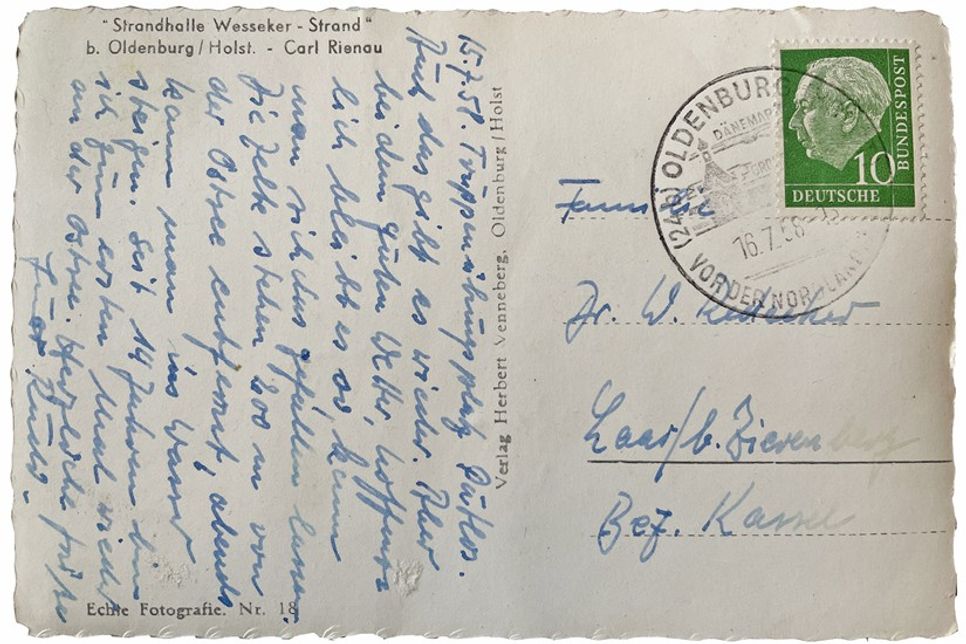 "Strandhalle Wesseker-Strand"
b. Oldenburg/Holst. - Carl Rienau
15.7.58. Truppenübungsplatz Putlos.
Auch das gibt es wieder. Aber
bei dem guten Wetter, hoffent-
lich bleibt es so kann
man sich das gefallen lassen.
Die Zelte stehen 200 m von
der Ostsee entfernt, abends
kann man ins Wasser
steigen. Seit 14 Jahren bin
ich zum ersten Mal wieder
an der Ostsee. Herzliche Grüße
Euer
Echte Fotografie. Nr. 18
Verlag Herbert Venneberg, Oldenburg/Holst
(24b) OLDENBURG
DÄNEMARK
16.7.58
VOR DER NORD
10
DEUTSCHE
BUNDESPOST
Familie
Dr. W.
Laar/b. Zierenberg
Bez. Kassel